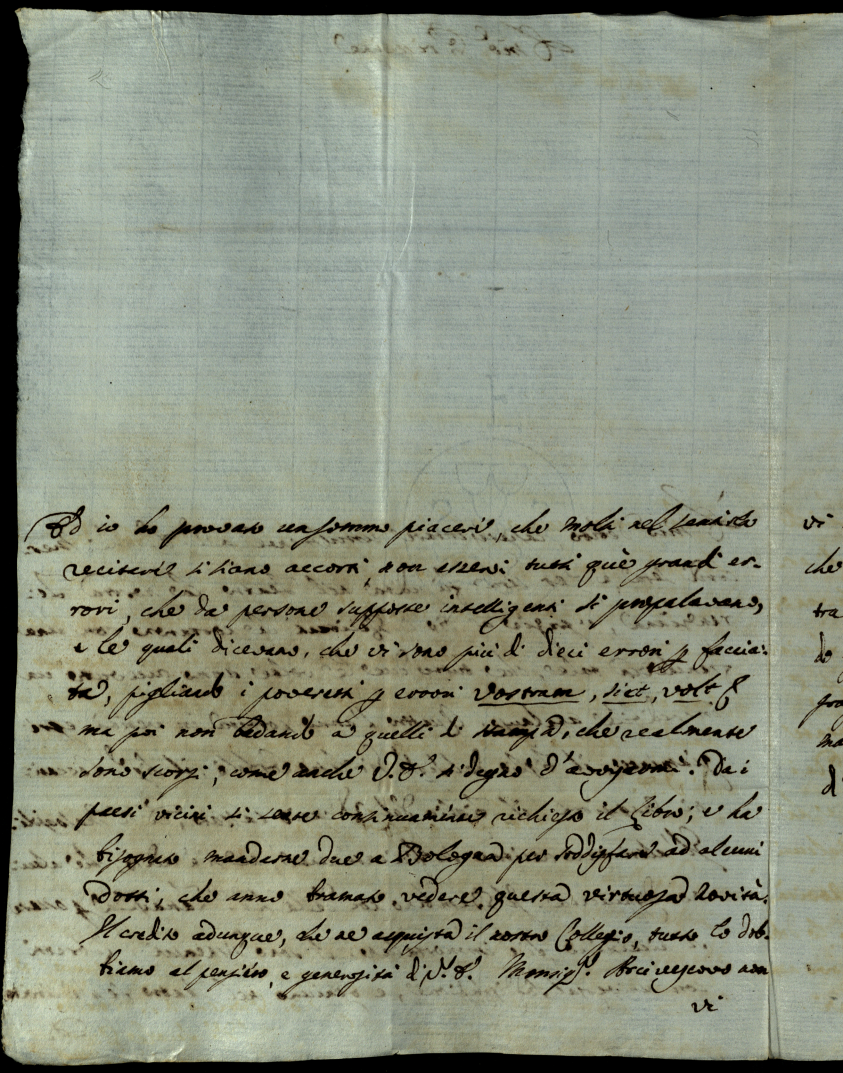 Ed io ho provato un sommo piacere, che molti nel sentirlo
recitare si siano accorti, non esservi tutti que' grandi er-
rori, che da persone supposte intelligenti si propalavano,
e le quali dicevano, che vi sono più di dieci errori p faccia-
ta, pigliando i poveretti p errori vostram, siet, volt &
ma poi non badando a quelli di stampa, che realmente
sono scorsi, come anche V. S. si degnò d'avvisarmi. Da i
paesi vicini si sente continuamente richiesto il Libro; e ha
bisognato mandarne due a Bologna per soddisfare ad alcuni
Dotti, che anno bramato vedere questa virtuosa Novità.
Il credito adunque, che ne acquista il nostro Collegio, tutto lo dob-
biamo al pensiero, e generosità di V. S. Monsig.r Arcivescovo non
vi
vi
che
tra
do
gra
ma
d'